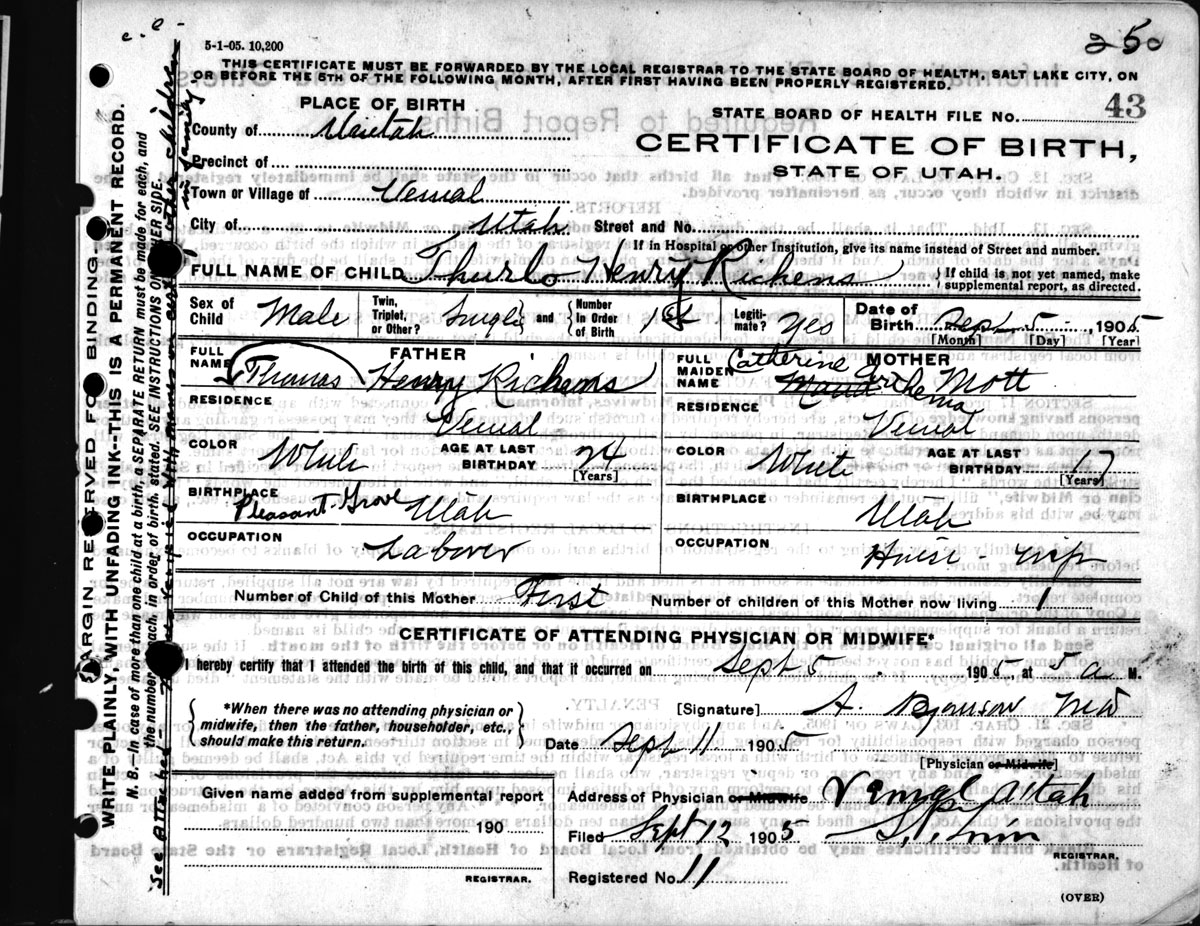 c. e -
250
5-1-05. 10,200
THIS CERTIFICATE MUST BE FORWARDED BY THE LOCAL REGISTRAR TO THE STATE BOARD OF HEALTH, SALT LAKE CITY, ON
OR BEFORE THE 5TH OF THE FOLLOWING MONTH, AFTER FIRST HAVING BEEN PROPERLY REGISTERED.
PLACE OF BIRTH
STATE BOARD OF HEALTH FILE NO. 43
County of Uintah
CERTIFICATE OF BIRTH,
STATE OF UTAH.
Precinct of
Town or Village of Vernal
City of Utah Street and No.
{ If in Hospital or other Institution, give its name instead of Street and number.
FULL NAME OF CHILD Thurlo Henry Richens { If child is not yet named, make supplemental report, as directed.
Sex of Child Male Twin, Triplet, or Other? Single and { Number in Order of Birth 1st Legiti-mate? Yes Date of Birth Sept 5 - , 1905
[Month] [Day] [Year]
FULL NAME FATHER Thomas Henry Richens
FULL MAIDEN NAME MOTHER Catherine Mott
RESIDENCE Vernal
RESIDENCE Vernal
COLOR White AGE AT LAST BIRTHDAY 24 [Years]
COLOR White AGE AT LAST BIRTHDAY 17 [Years]
BIRTHPLACE Pleasant-Grove Utah
BIRTHPLACE Utah
OCCUPATION Laborer
OCCUPATION House - wife
Number of Child of this Mother First Number of children of this Mother now living 1
CERTIFICATE OF ATTENDING PHYSICIAN OR MIDWIFE*
I hereby certify that I attended the birth of this child, and that it occurred on Sept 5 , 1905, at 5 a M.
{ *When there was no attending physician or midwife, then the father, householder, etc., should make this return. }
[Signature] A. MD
Date Sept 11 1905
[Physician or Midwife]
Given name added from supplemental report
190
REGISTRAR.
Address of Physician or Midwife Vernal Utah
Filed Sept 12 1905
REGISTRAR.
Registered No. 11
(OVER)
MARGIN RESERVED FOR BINDING.
WRITE PLAINLY WITH UNFADING INK--THIS IS A PERMANENT RECORD.
N. B.--In case of more than one child at a birth, a SEPARATE RETURN must be made for each, and
the number of each, in order of birth, stated. SEE INSTRUCTIONS OTHER SIDE.
See Attached - other children
in family